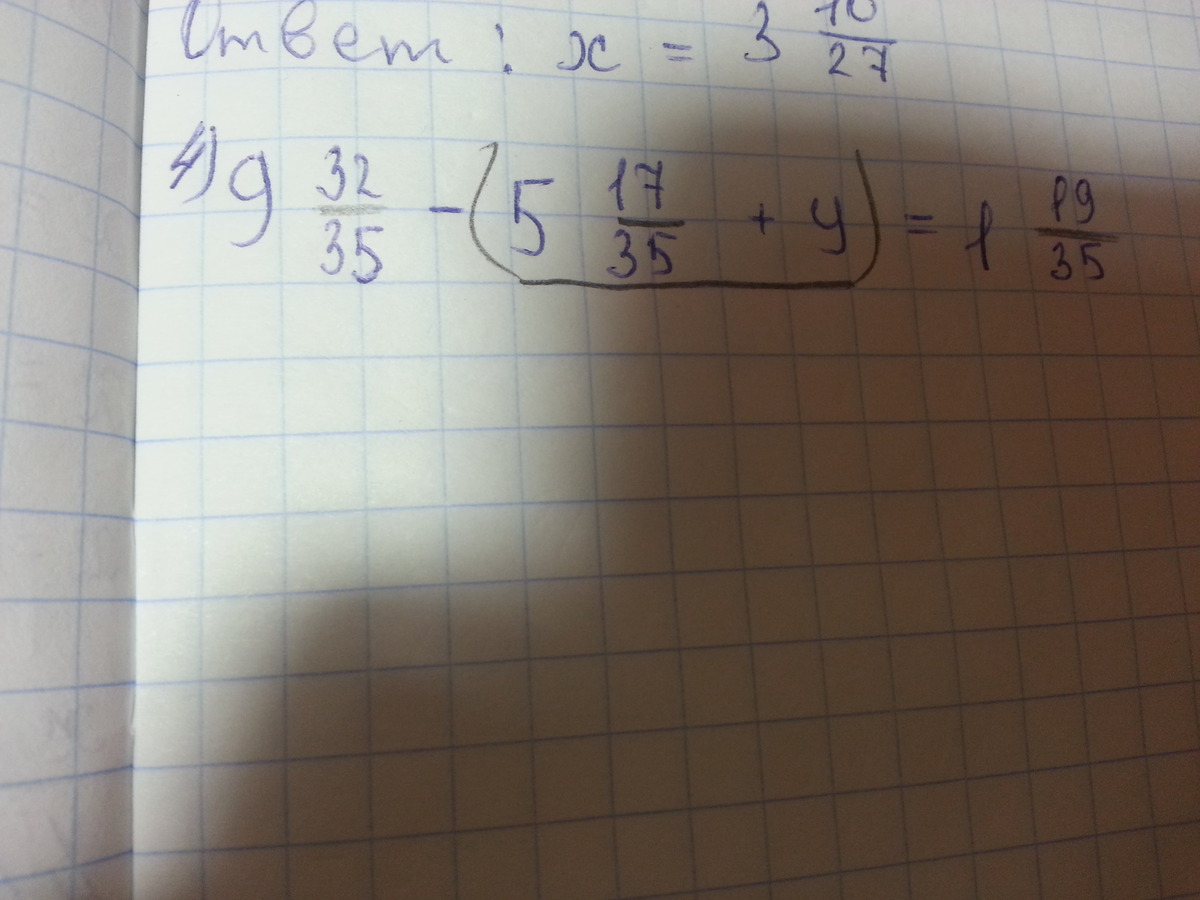 Ответ : x = 3 10/27
4) 9 32/35 - (5 17/35 + y) = 1 19/35